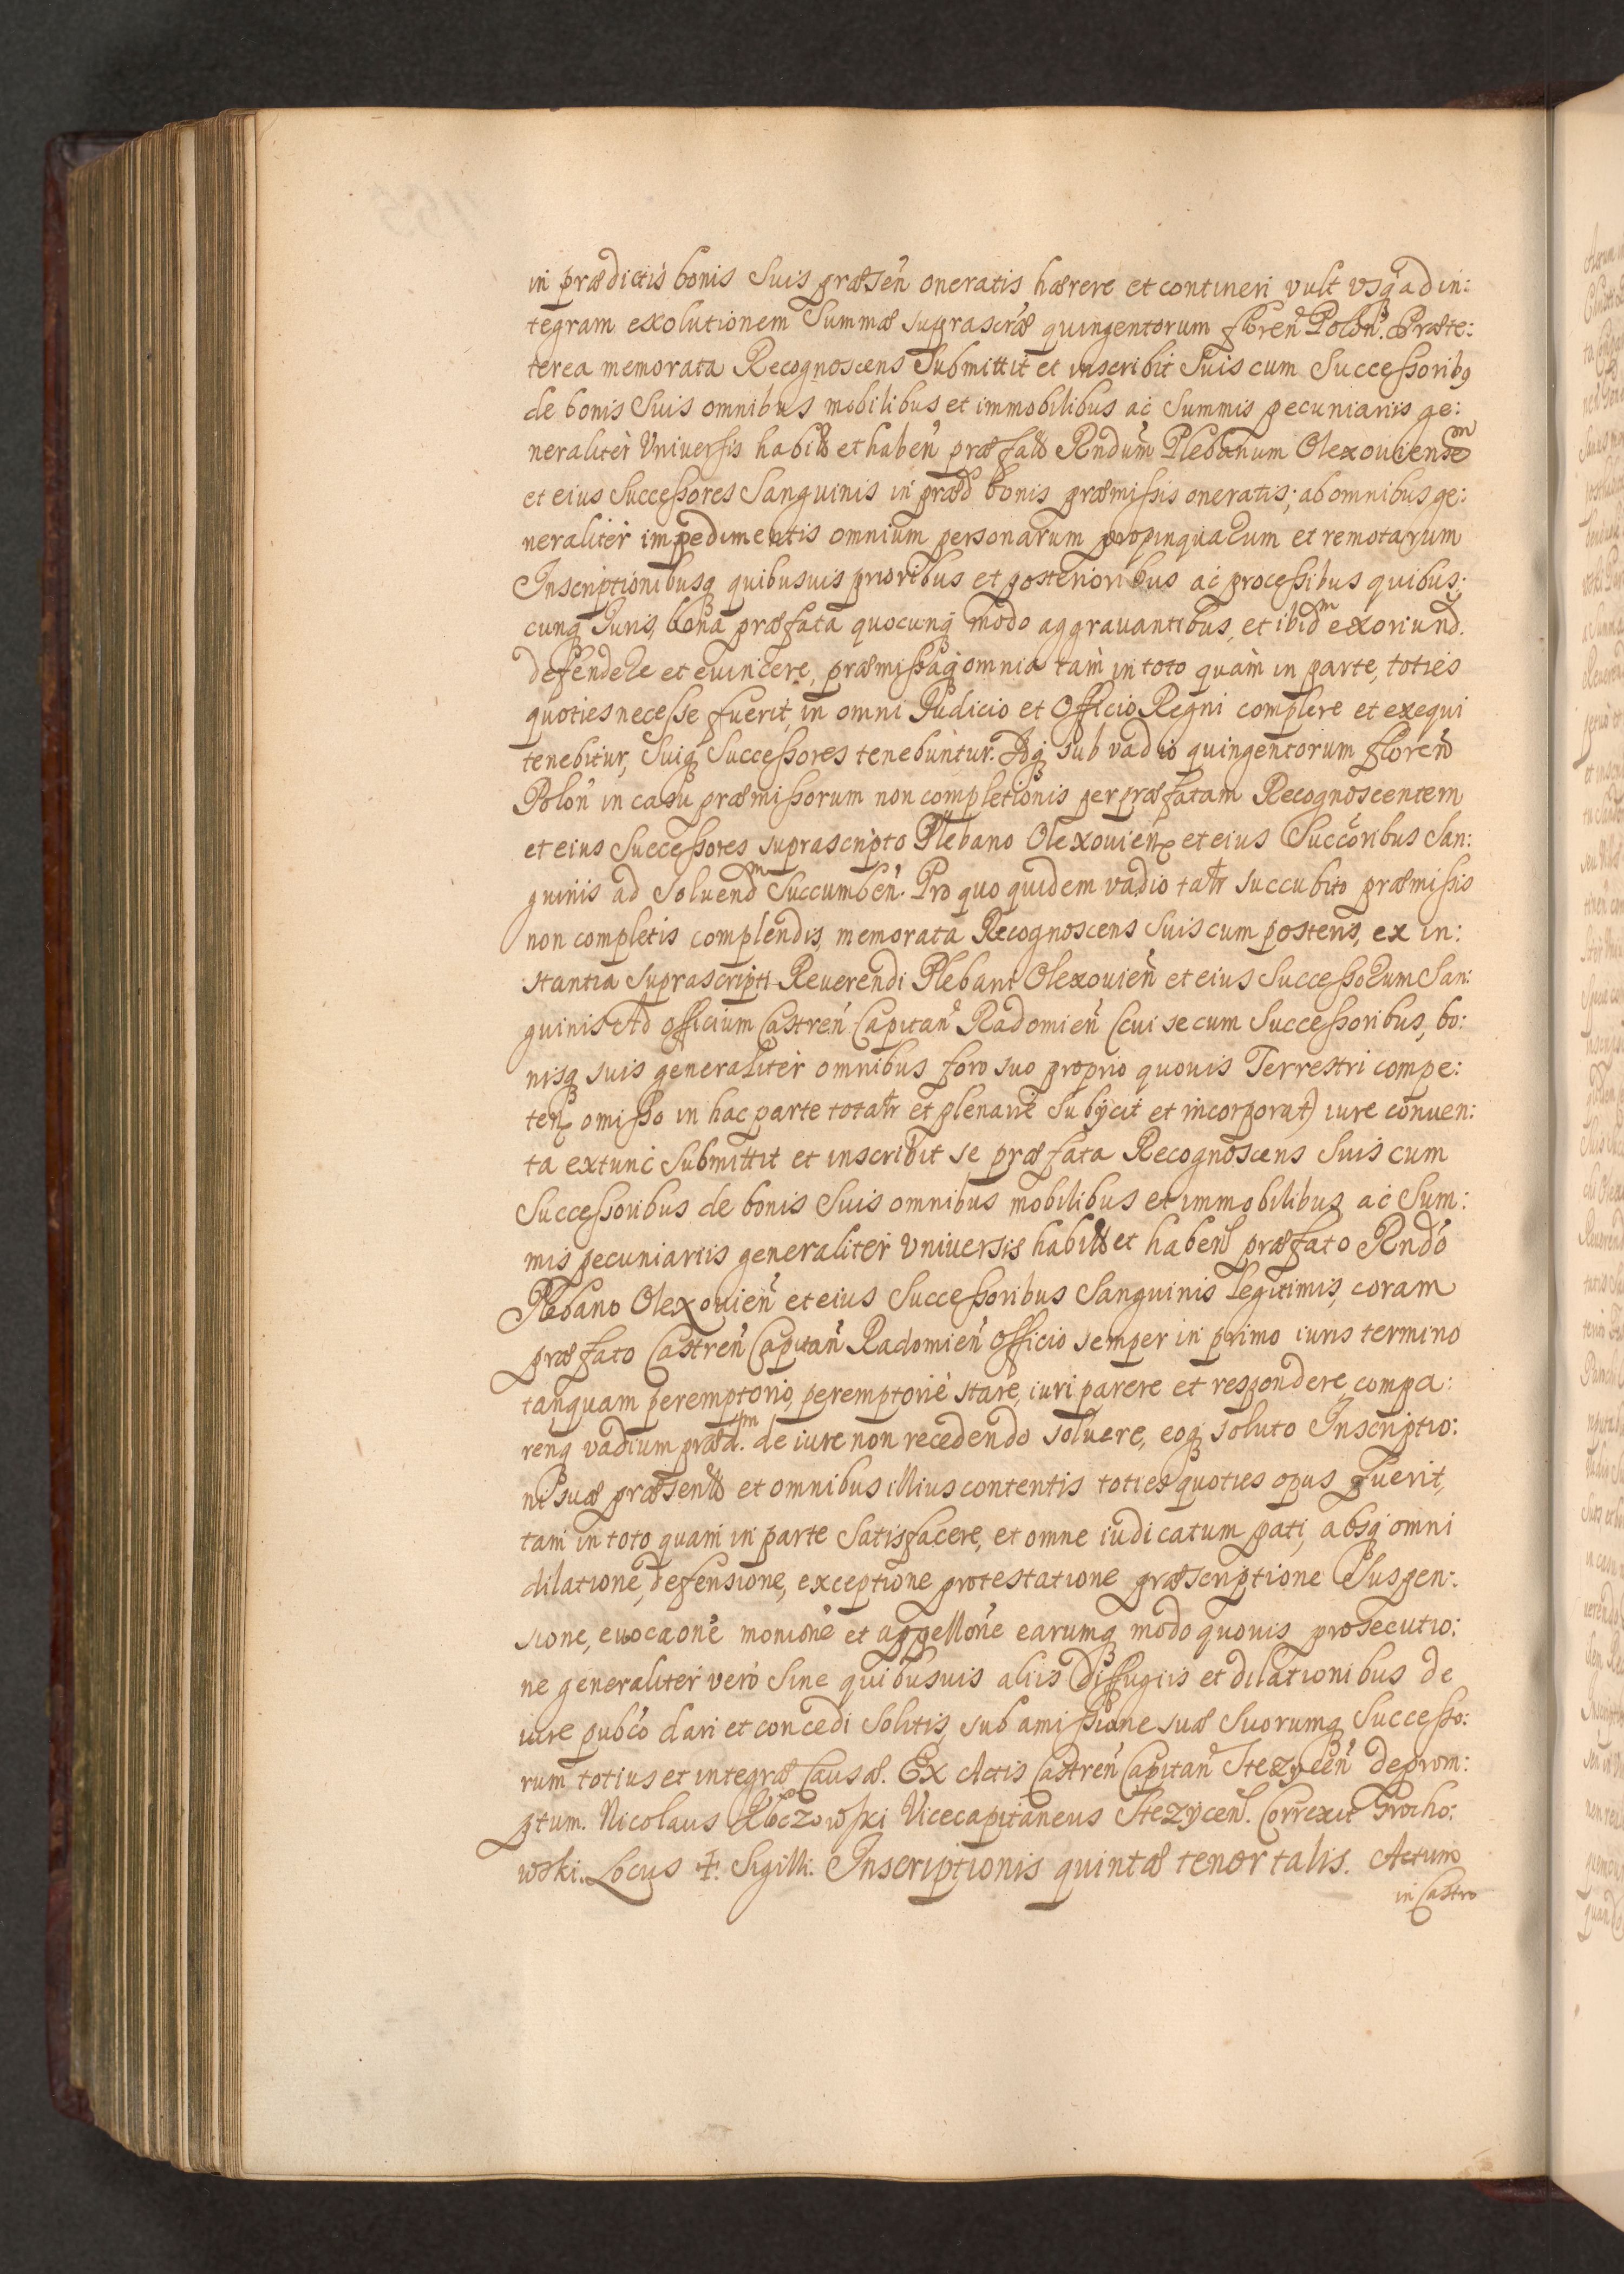 in prædictis bonis Suis præsen̄ oneratis hærere et contineri vult vsq́ ad in:
tegram exolutionem Summæ suprascr̄æ quingentorum floren̄ Polon̄. Præte:
terea memorata Recognoscens Submittit et inscribit Suis cum Successoribꝰ
de bonis Suis omnibus mobilibus et immobilibus ac Summis pecuniariis ge:
neraliter Vniuersis habitis et haben̄ præfatū Rndum̄ Plebanum Olexouiensem
et eius Successores Sanguinis in præd bonis præmissis oneratis; ab omnibus ge:
neraliter impedimentis omnium personarum propinquarum et remotarum
Inscriptionibusq́ quibusuis prioribus et posterioribus ac processibus quibus:
cunq́ Juris, bona præfata quocunq́ modo aggrauantibus, et ibidm exoriund.
defendere et euincere, præmissaq́ omnia tam in toto quàm in parte, toties
quoties necesse fuerit, in omni Judicio et Officio Regni complere et exequi
tenebitur, Suiq́ Successores tenebuntur. Idq́ sub vadio quingentorum floren̄
Polon̄ in casu præmissorum non completionis per præfatam Recognoscentem
et eius Successores suprascripto Plebano Olexouien̄ et eius Succoribus San:
guinis ad Soluendm Succumben̄. Pro quo quidem vadio talr̄ succubito præmissis
non completis complendis, memorata Recognoscens Suis cum posteris, ex in:
stantia suprascripti Reuerendi Plebani Olexouien̄ et eius Successorum San:
guinis Ad officium Castren̄ Capitan̄ Radomien̄ (cui se cum Successoribus, bo:
nisq́ suis generaliter omnibus foro suo proprio quouis Terrestri compe:
ten̄ omisso in hac parte totalr̄ et plenarie Subijcit et incorporat) iure conuen:
ta extunc Submittit et inscribit se præfata Recognoscens Suis cum
Successoribus de bonis Suis omnibus mobilibus et immobilibus ac Sum:
mis pecuniariis generaliter vniuersis habitis et haben̄ præfato Rndo
Plebano Olexouien̄ et eius Successoribus Sanguinis legitimis, coram
præfato Castren̄ Capitan̄ Radomien̄ Officio semper in primo iuris termino
tanquam peremptorio, peremptorie stare, iuri parere et respondere, compa:
renq́ vadium prædm. de iure non recedendo soluere, eoq́ soluto Inscriptio:
ni suæ præsenti et omnibus illius contentis toties quoties opus fuerit,
tam in toto quam in parte Satisfacere, et omne iudicatum pati, absq́ omni
dilatione, defensione, exceptione protestatione præscriptione Suspen:
sione, euocaōne monione et appellōne earumq́ modo quouis prosecutio:
ne generaliter vero Sine quibusuis aliis Diffugiis et dilationibus de
iure pubco dari et concedi Solitis, sub amissione suæ Suorumq́ Successo:
rum totius et integræ Causæ. Ex Actis Castren̄ Capitan̄ Stezycen̄ deprom:
ptum. Nicolaus Vicecapitaneus Stezycen̄. Correxit Grocho:
wski. Locus ✝. Sigilli. Inscriptionis quintæ tenor talis. Actum
in Castro